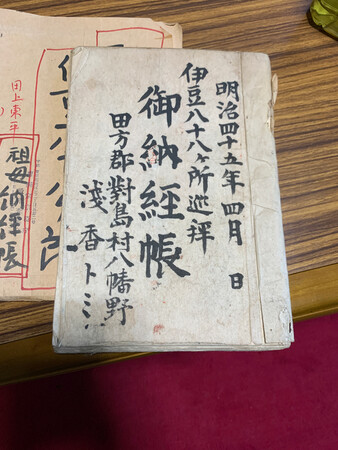 明治四十五年四月　日
伊豆八十八ヶ所巡拝
御納経帳
田方郡對島村八幡野
淺香トミ
田上東平
祖母納経帳